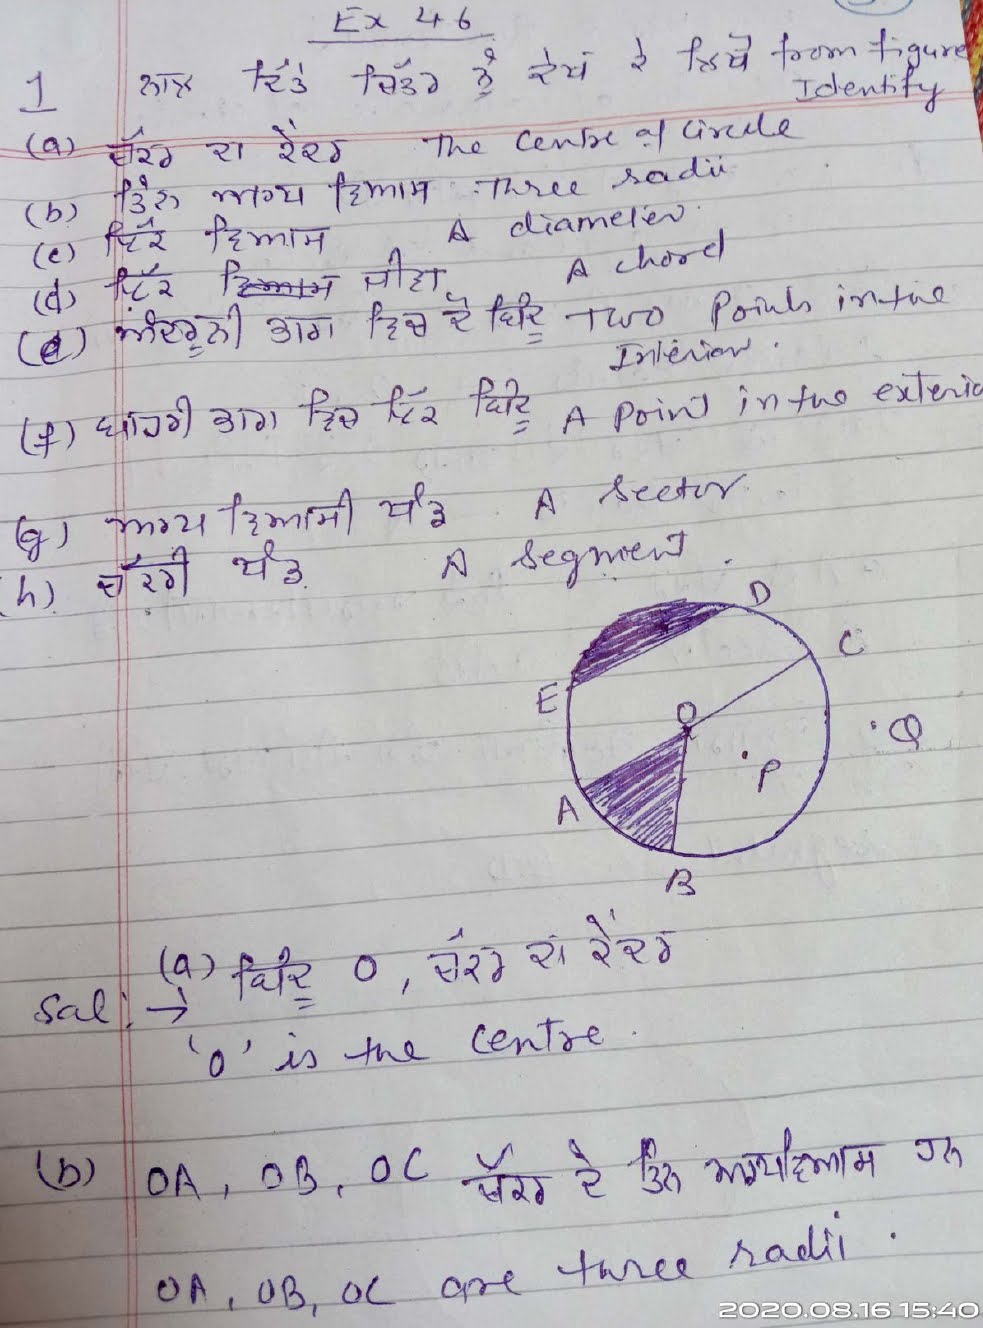 Ex 4.6
1 ਨਾਲ ਦਿੱਤੇ ਚਿੱਤਰ ਨੂੰ ਦੇਖੋ ਤੇ ਲਿਖੋ from figure
Identify
(a) ਚੱਕਰ ਦਾ ਕੇਂਦਰ The Centre of Circle
(b) ਤਿੰਨ ਅਰਧ ਵਿਆਸ Three radii
(c) ਇੱਕ ਵਿਆਸ A diameter
(d) ਇੱਕ ਜੀਵਾ A chord
(e) ਅੰਦਰੂਨੀ ਭਾਗ ਵਿਚ ਦੋ ਬਿੰਦੂ Two Points in the
Interior.
(f) ਬਾਹਰੀ ਭਾਗ ਵਿਚ ਇੱਕ ਬਿੰਦੂ A Point in the exterio
(g) ਅਰਧ ਵਿਆਸੀ ਖੰਡ A Sector
(h) ਚੱਕਰੀ ਖੰਡ A Segment.
D
C
E
O
Q
P
A
B
(a) ਬਿੰਦੂ O, ਚੱਕਰ ਦਾ ਕੇਂਦਰ
Sol: →
'O' is the Centre.
(b) OA, OB, OC ਚੱਕਰ ਦੇ ਤਿੰਨ ਅਰਧਵਿਆਸ ਹਨ
OA, OB, OC are three radii.
2020.08.16 15:40